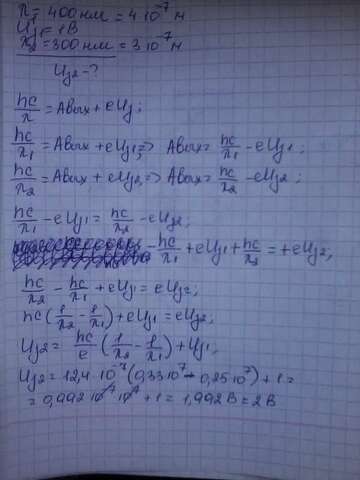 λ₁ = 400 нм = 4·10⁻⁷ м
Uз₁ = 1В
λ₂ = 300 нм = 3·10⁻⁷ м
Uз₂ - ?
hc/λ = Aвых + eUз;
hc/λ₁ = Aвых + eUз₁, => Aвых = hc/λ₁ - eUз₁;
hc/λ₂ = Aвых + eUз₂, => Aвых = hc/λ₂ - eUз₂;
hc/λ₁ - eUз₁ = hc/λ₂ - eUз₂;
- hc/λ₁ + eUз₁ + hc/λ₂ = + eUз₂;
hc/λ₂ - hc/λ₁ + eUз₁ = eUз₂;
hc(1/λ₂ - 1/λ₁) + eUз₁ = eUз₂;
Uз₂ = hc/e (1/λ₂ - 1/λ₁) + Uз₁;
Uз₂ = 12,4·10⁻⁷ (0,33·10⁷ - 0,25·10⁷) + 1 =
= 0,992·10⁻⁷·10⁷ + 1 = 1,992 В = 2В